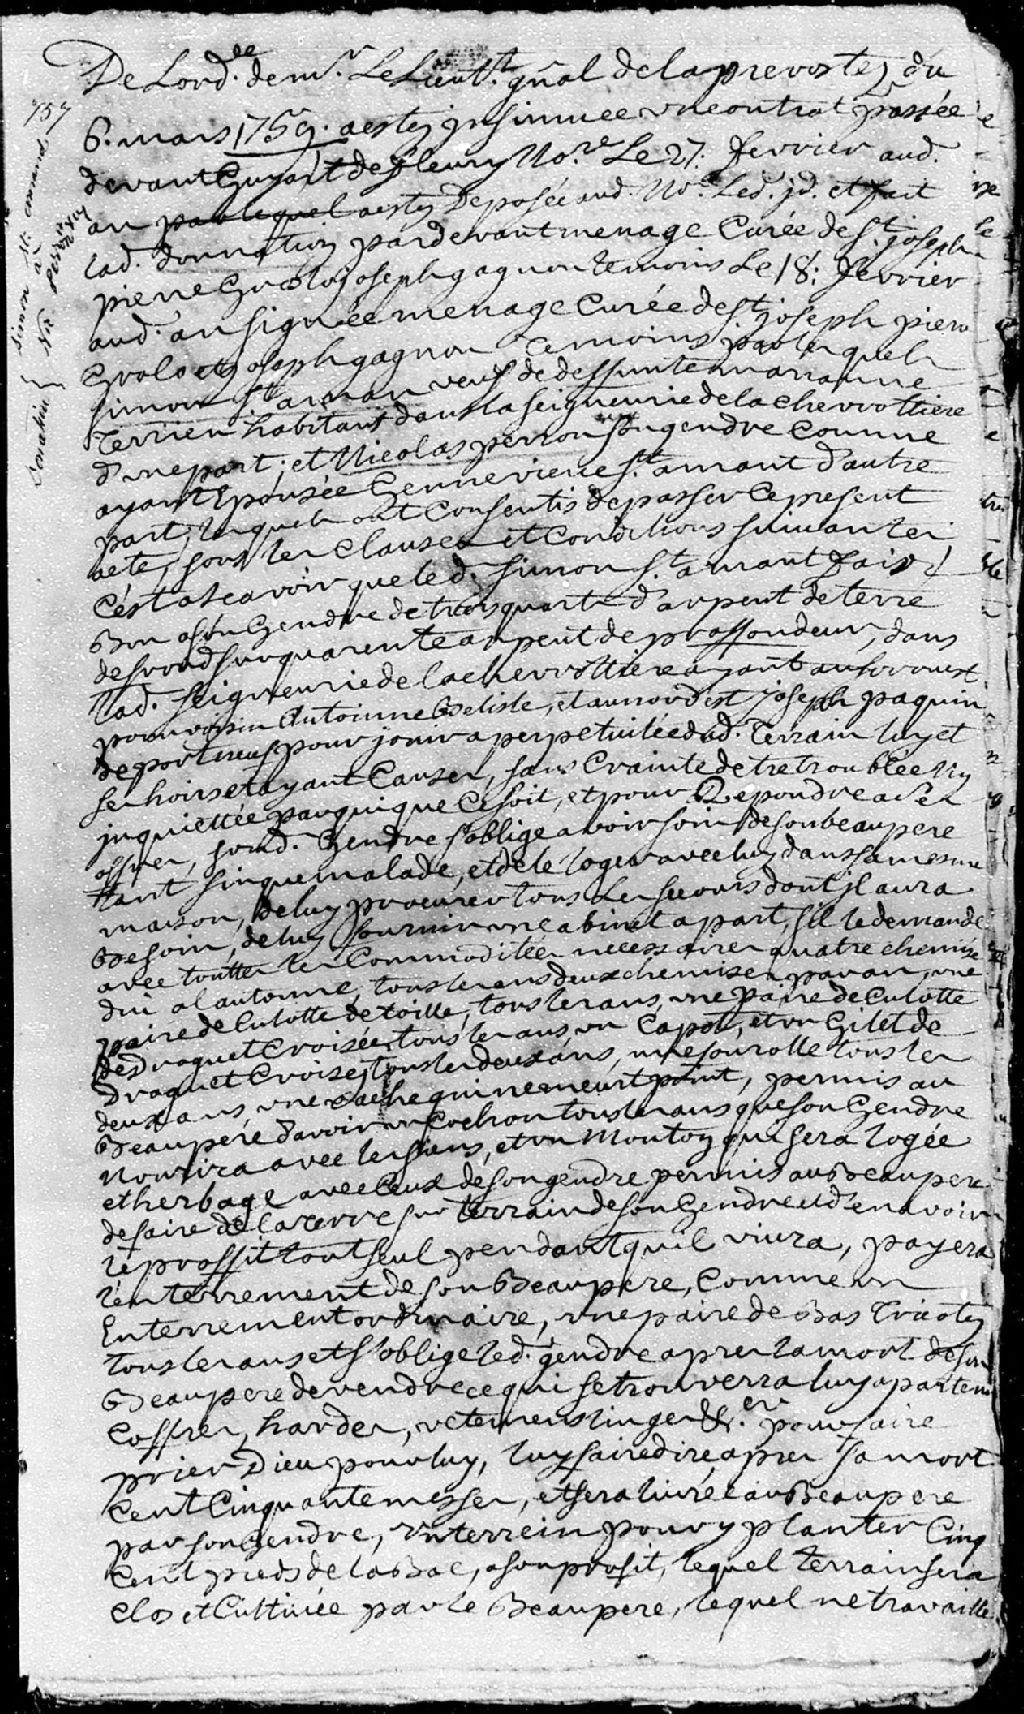 757
Donation } Simon St. amand
a
Nic. perron
De Lord.ce de mr. Le Lieut.t gnal de la prevostez du
6. mars 1759. a estez jnsinuee un contrat passée
devant Guyart de fleury No.re Le 27. fevrier aud.
an par lequel a estez Deposée aud. No.re Led. jd. et fait
lad. donnation par devant menage Curée de St. joseph
pierre Grolo joseph gagnon temoins Le 18. fevrier
aud. an signée menage Curée de st joseph piere
Grolo et joseph gagnon temoins, par lequel
Simon St. aman veuf de deffunte marianne
Terrien habitant dans la seigneurie de la chevrottiere
d'une part; et Nicolas perron son gendre comme
ayant Epousée Genneviene St. amant d'autre
part; lesquels ont Consentis de passer Ce present
acte, sous les Clauses et Conditions suivantes
C'est a sçavoir que led. simon St. amant fait
Don a son Gendre de trois quarts d'arpent de terre
de frond sur quarente arpent de proffondeur, dans
lad. seigneurie de la chevrottiere ayant au sorouest
pour voisin Antoinne Belisle, et au nord est joseph paquin
de portneuf pour jouir a perpetuitée dud. Terrain luy et
ses hoirs et ayant Causes, sans Crainte detre troublée Ny
jnquiettée par qui que Ce soit, et pour Repondre a ses
offres, sond. Gendre s'oblige avoir soin de son beaupere
tant sin que malade, et de le loger avec luy dans sa mesme
maison, de luy procurer tous les secours dont jl aura
Besoin, de luy fournir un cabinet a part, s'il le demande
avec toutes les Commoditées necessaires quatre chemise
dui a l'automne, tous les ans deux chemises par an, une
paire de Culotte de toille, tous les ans, une paire de Culotte
de Droguet Croisée, tous les ans, un Capot, et un Gilet de
Droguet Croisez tous les deux ans, une tourolle tous les
deux ans, une vache qui ne meurt point, permis au
Beaupere d'avoir un Cochon tous les ans que son Gendre
Nourira avec les siens, et un Mouton qui sera logée
et herbagé avec Ceux de son gendre, permis au Beaupere
de faire de la terre sur terrain de son Gendre et d'en avoir
le proffit tout seul pendant quil vivra, payera
l'enterrement de son Beaupere, Comme un
Enterrement ordinaire, une paire de Bas Tricotez
tous les ans et s'oblige led. gendre apres la mort de son
Beaupere de vendre ce qui se trouverra luy apartenir
Coffres, hardes, vetemens linges &.er pour faire
prier Dieu pour luy, luy faire dire apres sa mort
Cent Cinquante messes, et sera livrée au Beaupere
par son Gendre, un terrein pour y planter Cinq
Cent pieds de taBac, a son profit, lequel terrain sera
Clos et Cultivée par le Beaupere, lequel ne travaille